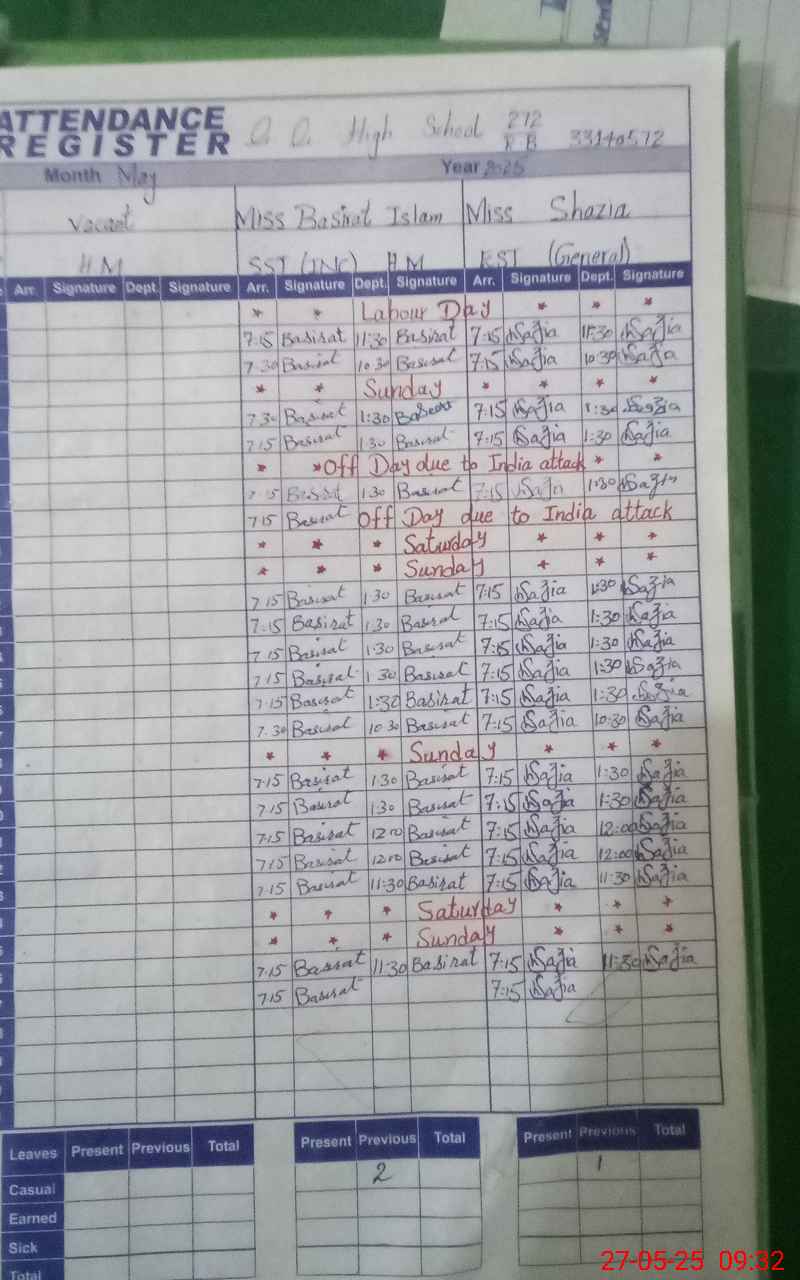 ATTENDANCE
REGISTER
High School 272
R B 33140572
Month May Year 2025
Vacant Miss Basirat Islam Miss Shazia
HM SST (INC) HM EST (General)
Arr. Signature Dept. Signature Arr. Signature Dept. Signature Arr. Signature Dept. Signature
* * Labour Day * * *
7:15 Basirat 11:30 Basirat 7:15 Sazia 11:30 Sazia
7:30 Basirat 10:30 Basirat 7:15 Sazia 10:30 Sazia
* * Sunday * * *
7:30 Basirat 1:30 7:15 Sazia 1:30 Sazia
7:15 Basirat 1:30 Basirat 7:15 Sazia 1:30 Sazia
* * Off Day due to India attack * *
7:15 Basirat 1:30 Basirat 7:15 Sazia 1:30 Sazia
7:15 Basirat Off Day due to India attack
* * * Saturday * * *
* * * Sunday * * *
7:15 Basirat 1:30 Basirat 7:15 Sazia 1:30 Sazia
7:15 Basirat 1:30 Basirat 7:15 Sazia 1:30 Sazia
7:15 Basirat 1:30 Basirat 7:15 Sazia 1:30 Sazia
7:15 Basirat 1:30 Basirat 7:15 Sazia 1:30 Sazia
7:15 Basirat 1:30 Basirat 7:15 Sazia 1:30 Sazia
7:30 Basirat 10:30 Basirat 7:15 Sazia 10:30 Sazia
* * * Sunday * * *
7:15 Basirat 1:30 Basirat 7:15 Sazia 1:30 Sazia
7:15 Basirat 1:30 Basirat 7:15 Sazia 1:30 Sazia
7:15 Basirat 12:00 Basirat 7:15 Sazia 12:00 Sazia
7:15 Basirat 12:00 Basirat 7:15 Sazia 12:00 Sazia
7:15 Basirat 11:30 Basirat 7:15 Sazia 11:30 Sazia
* * * Saturday * * *
* * * Sunday * * *
7:15 Basirat 11:30 Basirat 7:15 Sazia 11:30 Sazia
7:15 Basirat 7:15 Sazia
Leaves Present Previous Total Present Previous Total Present Previous Total
Casual 2 1
Earned
Sick
Total
27-05-25 09:32